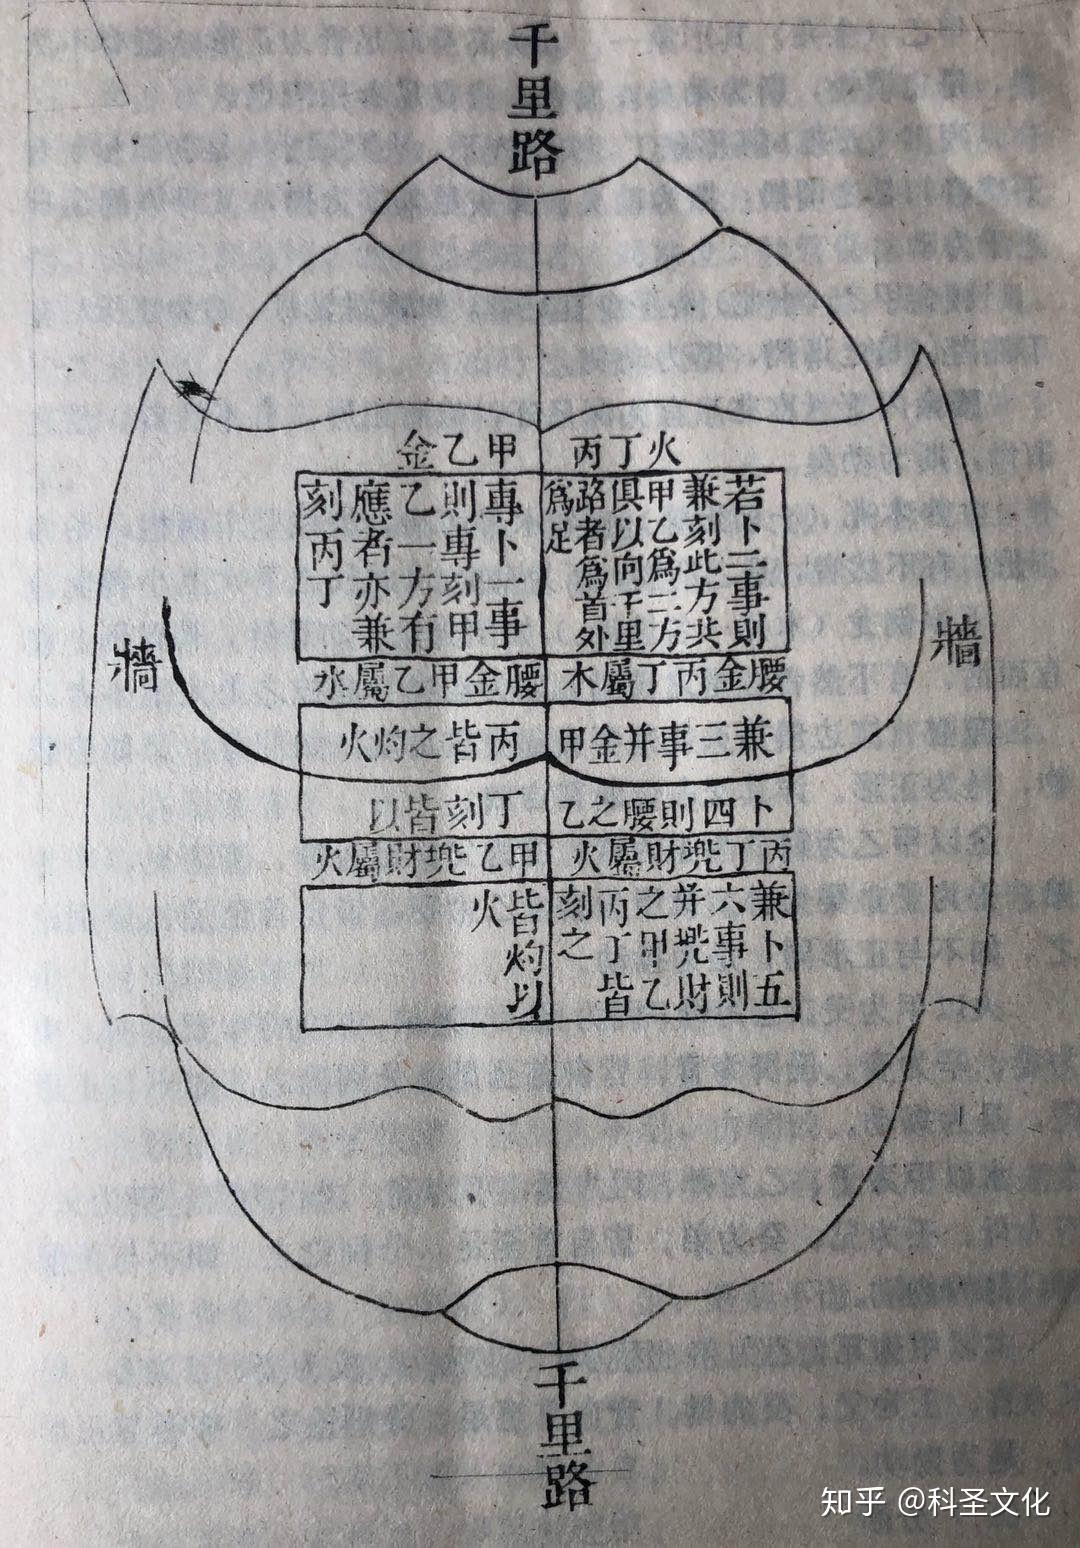 千里路
丙丁火
甲乙金
若卜二事則
兼刻此方共
甲乙爲二方
俱以向千里
路者爲首外
爲足
專卜一事
則專刻甲
乙一方有
應者亦兼
刻丙丁
牆
牆
腰金丙丁屬木
腰金甲乙屬水
兼卜
三四
事則
并腰
金之
甲乙
丙丁
皆刻
之皆
灼以
火
丙丁兠財屬火
甲乙兠財屬火
兼卜五
六事則
并兠財
之甲乙
丙丁皆
刻之
皆灼以
火
千里路
知乎 @科圣文化